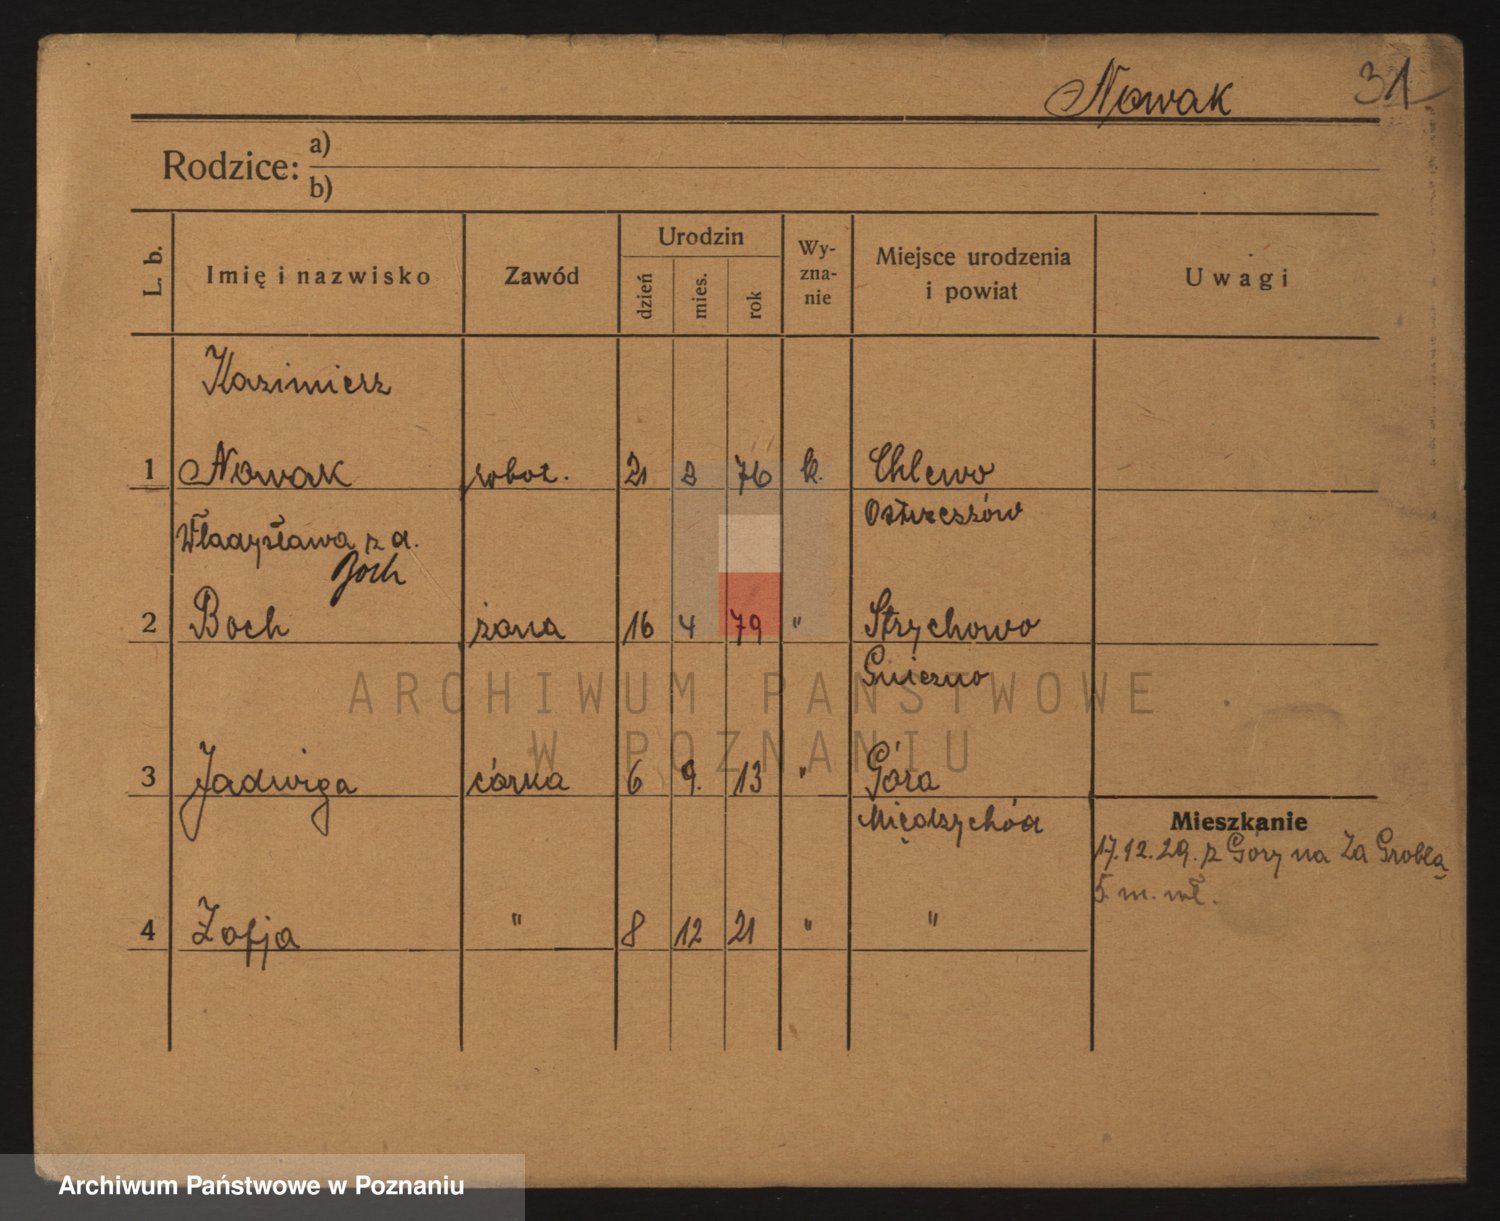 Nowak 31
Rodzice: a)
b)
L. b. Imię i nazwisko Zawód Urodzin dzień mies. rok Wy-zna-nie Miejsce urodzenia i powiat Uwagi
Kazimierz
1 Nowak robot. 21 2 76 k. Chlewo
Ostrzeszów
Władysława z d.
Boch
2 Boch żona 16 4 79 " Strychowo
Gniezno
ARCHIWUM PAŃSTWOWE
W POZNANIU
3 Jadwiga córka 6 9. 13 " Góra
Międzychód
Mieszkanie
17.12.29. z Góry na Za Groblą
5 m. wł.
4 Zofja " 8 12 21 " "
Archiwum Państwowe w Poznaniu